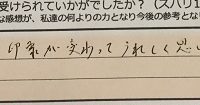 受けられていかがでしたか？（ズバリ
な感想が、私達の何よりの力となり今後の参考とな
印象が変わってうれしく思い